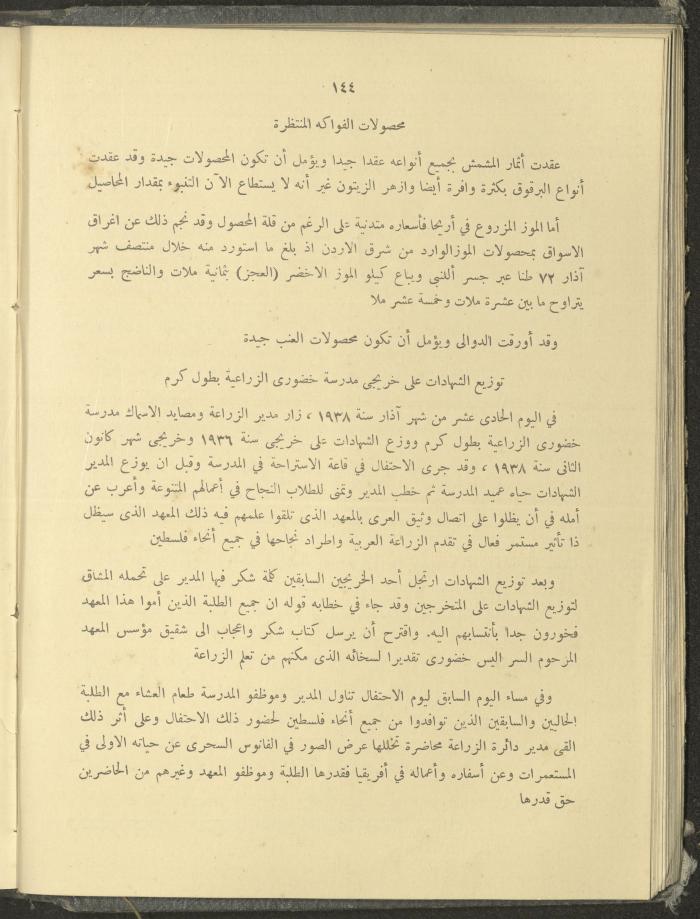 ١٤٤
محصولات الفواكه المنتظرة
عقدت أثمار المشمش بجميع أنواعه عقدا جيدا ويؤمل أن تكون المحصولات جيدة وقد عقدت
أنواع البرقوق بكثرة وافرة أيضا وازهر الزيتون غير أنه لا يستطاع الآن التنبوء بمقدار المحاصيل
أما الموز المزروع في أريحا فأسعاره متدنية على الرغم من قلة المحصول وقد نجم ذلك عن اغراق
الاسواق بمحصولات الموز الوارد من شرق الاردن اذ بلغ ما استورد منه خلال منتصف شهر
آذار ٧٢ طنا عبر جسر أللنبي ويباع كيلو الموز الاخضر (العجر) بثمانية ملات والناضج بسعر
يتراوح ما بين عشرة ملات وخمسة عشر ملا
وقد أورقت الدوالى ويؤمل أن تكون محصولات العنب جيدة
توزيع الشهادات على خريجى مدرسة خضورى الزراعية بطول كرم
في اليوم الحادى عشر من شهر آذار سنة ١٩٣٨ ، زار مدير الزراعة ومصايد الاسماك مدرسة
خضورى الزراعية بطول كرم ووزع الشهادات على خريجى سنة ١٩٣٦ وخريجى شهر كانون
الثانى سنة ١٩٣٨ ، وقد جرى الاحتفال في قاعة الاستراحة في المدرسة وقبل ان يوزع المدير
الشهادات حياه عميد المدرسة ثم خطب المدير وتمنى للطلاب النجاح في أعمالهم المتنوعة وأعرب عن
أمله في أن يظلوا على اتصال وثيق العرى بالمعهد الذى تلقوا علمهم فيه ذلك المعهد الذى سيظل
ذا تأثير مستمر فعال في تقدم الزراعة العربية واطراد نجاحها في جميع أنحاء فلسطين
وبعد توزيع الشهادات ارتجل أحد الخريجين السابقين كلمة شكر فيها المدير على تحمله المشاق
لتوزيع الشهادات على المتخرجين وقد جاء في خطابه قوله ان جميع الطلبة الذين أموا هذا المعهد
فخورون جدا بأنتسابهم اليه. واقترح أن يرسل كتاب شكر واعجاب الى شقيق مؤسس المعهد
المرحوم السر اليس خضورى تقديرا لسخائه الذى مكنهم من تعلم الزراعة
وفي مساء اليوم السابق ليوم الاحتفال تناول المدير وموظفو المدرسة طعام العشاء مع الطلبة
الحاليين والسابقين الذين توافدوا من جميع أنحاء فلسطين لحضور ذلك الاحتفال وعلى أثر ذلك
القى مدير دائرة الزراعة محاضرة تخللها عرض الصور في الفانوس السحرى عن حياته الاولى في
المستعمرات وعن أسفاره وأعماله في أفريقيا فقدرها الطلبة وموظفو المعهد وغيرهم من الحاضرين
حق قدرها